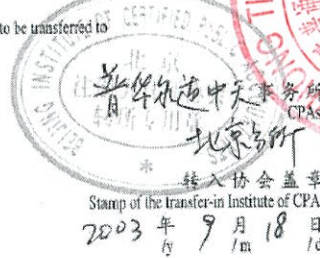 to be transferred to
BEIJING INSTITUTE OF CERTIFIED
普华永道中天事务所
CPAs
北京分所
转入协会盖章
Stamp of the transfer-in Institute of CPA
2003 年 9 月 18 日
/y /m /d